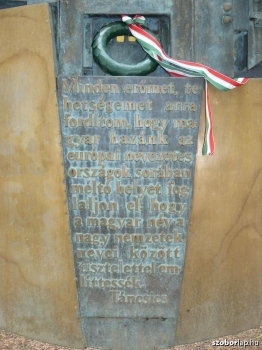 Minden erőmet, te
hetségemet arra
fordítom, hogy ma
gyar hazánk az
európai nevezetes
országok sorában
méltó helyet fog
laljon el, hogy
a magyar név a
nagy nemzetek
nevei között
tisztelettel em
líttessék.
Táncsics
szoborlap.hu